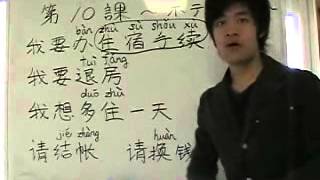 第10課 一 示
bàn zhù sù shǒu xù
我要办住宿手续
tuì fáng
我要退房
duō zhù
我想多住一天
jié zhàng huàn
请结帐 请换钱